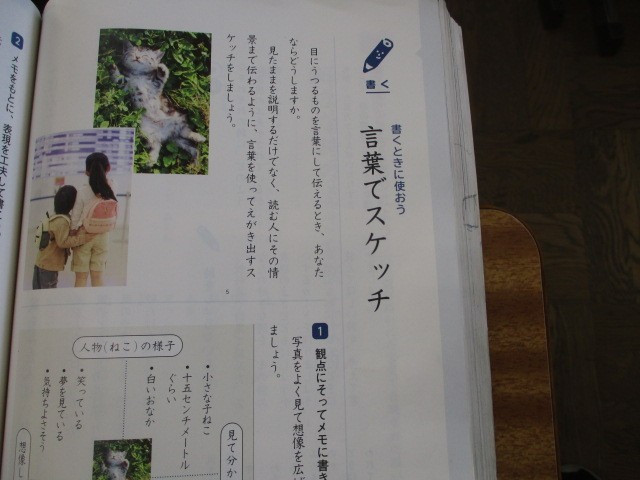 書く
書くときに使おう
言葉でスケッチ
目にうつるものを言葉にして伝えるとき、あなた
ならどうしますか。
見たままを説明するだけでなく、読む人にその情
景まで伝わるように、言葉を使ってえがき出すス
ケッチをしましょう。
5
1 観点にそってメモに書き
写真をよく見て想像を広げ
ましょう。
見て分か
・小さな子ねこ
・十五センチメートル
ぐらい
・白いおなか
人物(ねこ)の様子
・笑っている
・夢を見ている
・気持ちよさそう
想像し
2 メモをもとに、表現を工夫して書く